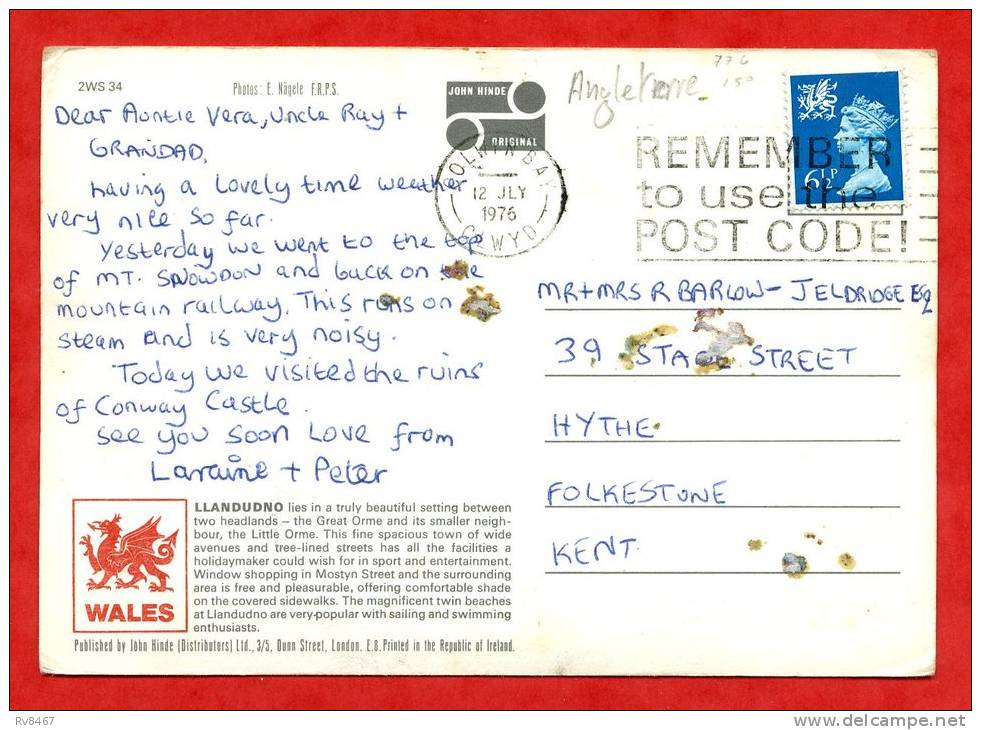 2WS 34
Photos: E. Nägele F.R.P.S.
JOHN HINDE
ORIGINAL
Angleterre
776
150
COLWYN BAY
12 JLY
1976
CLWYD
REMEMBER
to use the
POST CODE!
6½P
Dear Auntie Vera, Uncle Ray +
GRANDAD,
having a lovely time weather
very nice so far.
Yesterday we went to the top
of MT. SNOWDON and back on the
mountain railway. This runs on
steam and is very noisy.
Today we visited the ruins
of Conway Castle.
See you soon Love from
Larraine + Peter
MR + MRS R BARLOW - J ELDRIDGE ESQ
39 STADE STREET
HYTHE
FOLKESTONE
KENT.
WALES
LLANDUDNO lies in a truly beautiful setting between
two headlands – the Great Orme and its smaller neigh-
bour, the Little Orme. This fine spacious town of wide
avenues and tree-lined streets has all the facilities a
holidaymaker could wish for in sport and entertainment.
Window shopping in Mostyn Street and the surrounding
area is free and pleasurable, offering comfortable shade
on the covered sidewalks. The magnificent twin beaches
at Llandudno are very popular with sailing and swimming
enthusiasts.
Published by John Hinde (Distributors) Ltd., 3/5, Dunn Street, London. E.8. Printed in the Republic of Ireland.
Rv8467
www.delcampe.net